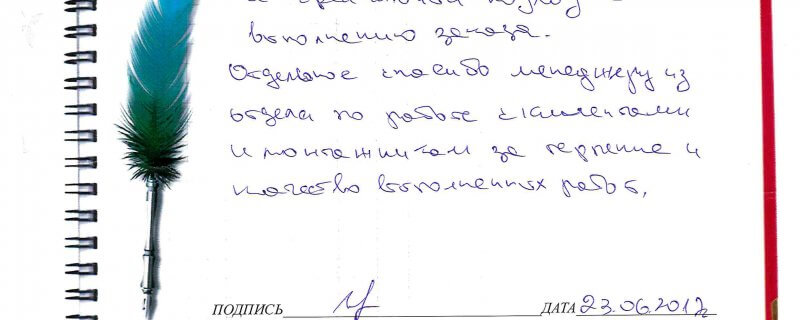 и грамотный подход к
выполнению заказа.
Отдельное спасибо менеджеру из
отдела по работе с клиентами
и монтажникам за терпение и
качество выполненных работ.
ПОДПИСЬ ДАТА 23.06.2017г